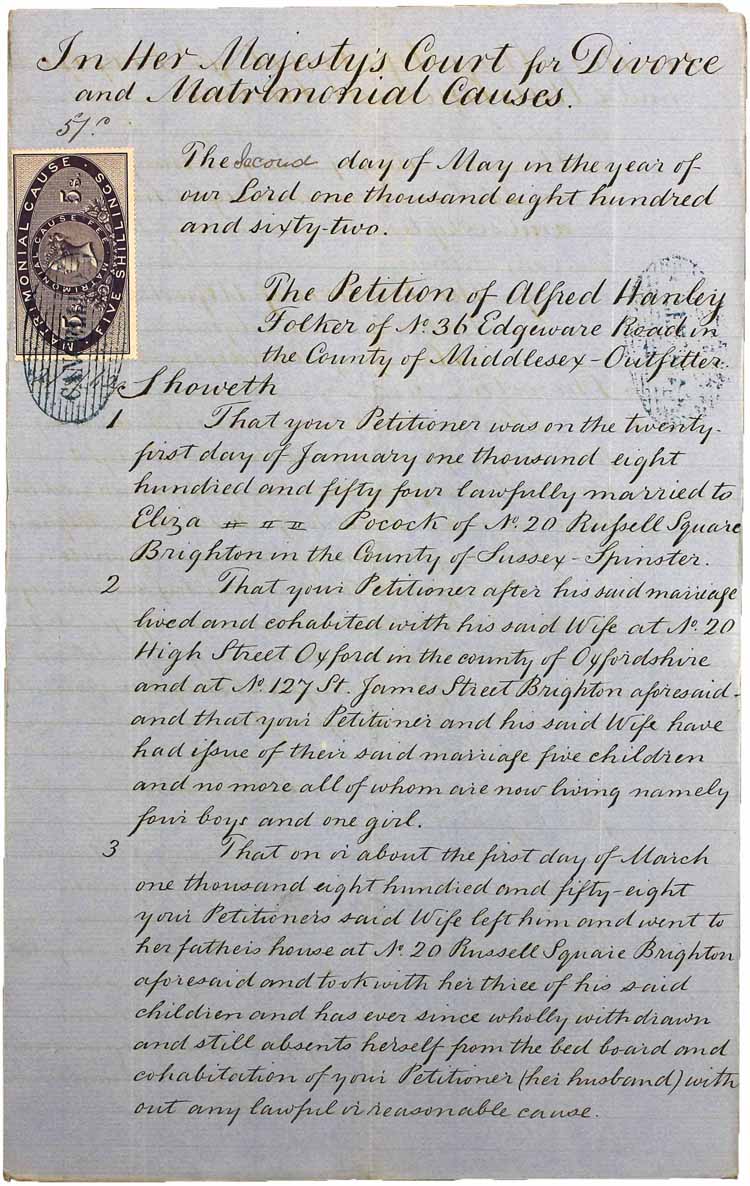 In Her Majesty's Court for Divorce
and Matrimonial Causes.
MATRIMONIAL CAUSE
FIVE SHILLINGS
5
MATRIMONIAL CAUSE FEE
5
The Second day of May in the year of
our Lord one thousand eight hundred
and sixty-two.
The Petition of Alfred Hanley
Folker of No. 36 Edgeware Road in
the County of Middlesex - Outfitter.
Showeth
1 That your Petitioner was on the twenty-
first day of January one thousand eight
hundred and fifty four lawfully married to
Eliza Pocock of No. 20 Russell Square
Brighton in the County of Sussex - Spinster.
2 That your Petitioner after his said marriage
lived and cohabited with his said Wife at No. 20
High Street Oxford in the county of Oxfordshire
and at No. 127 St. James Street Brighton aforesaid -
and that your Petitioner and his said Wife have
had issue of their said marriage five children
and no more all of whom are now living namely
four boys and one girl.
3 That on or about the first day of March
one thousand eight hundred and fifty-eight
your Petitioners said Wife left him and went to
her fathers house at No. 20 Russell Square Brighton
aforesaid and took with her three of his said
children and has ever since wholly withdrawn
and still absents herself from the bed board and
cohabitation of your Petitioner (her husband) with
out any lawful or reasonable cause.